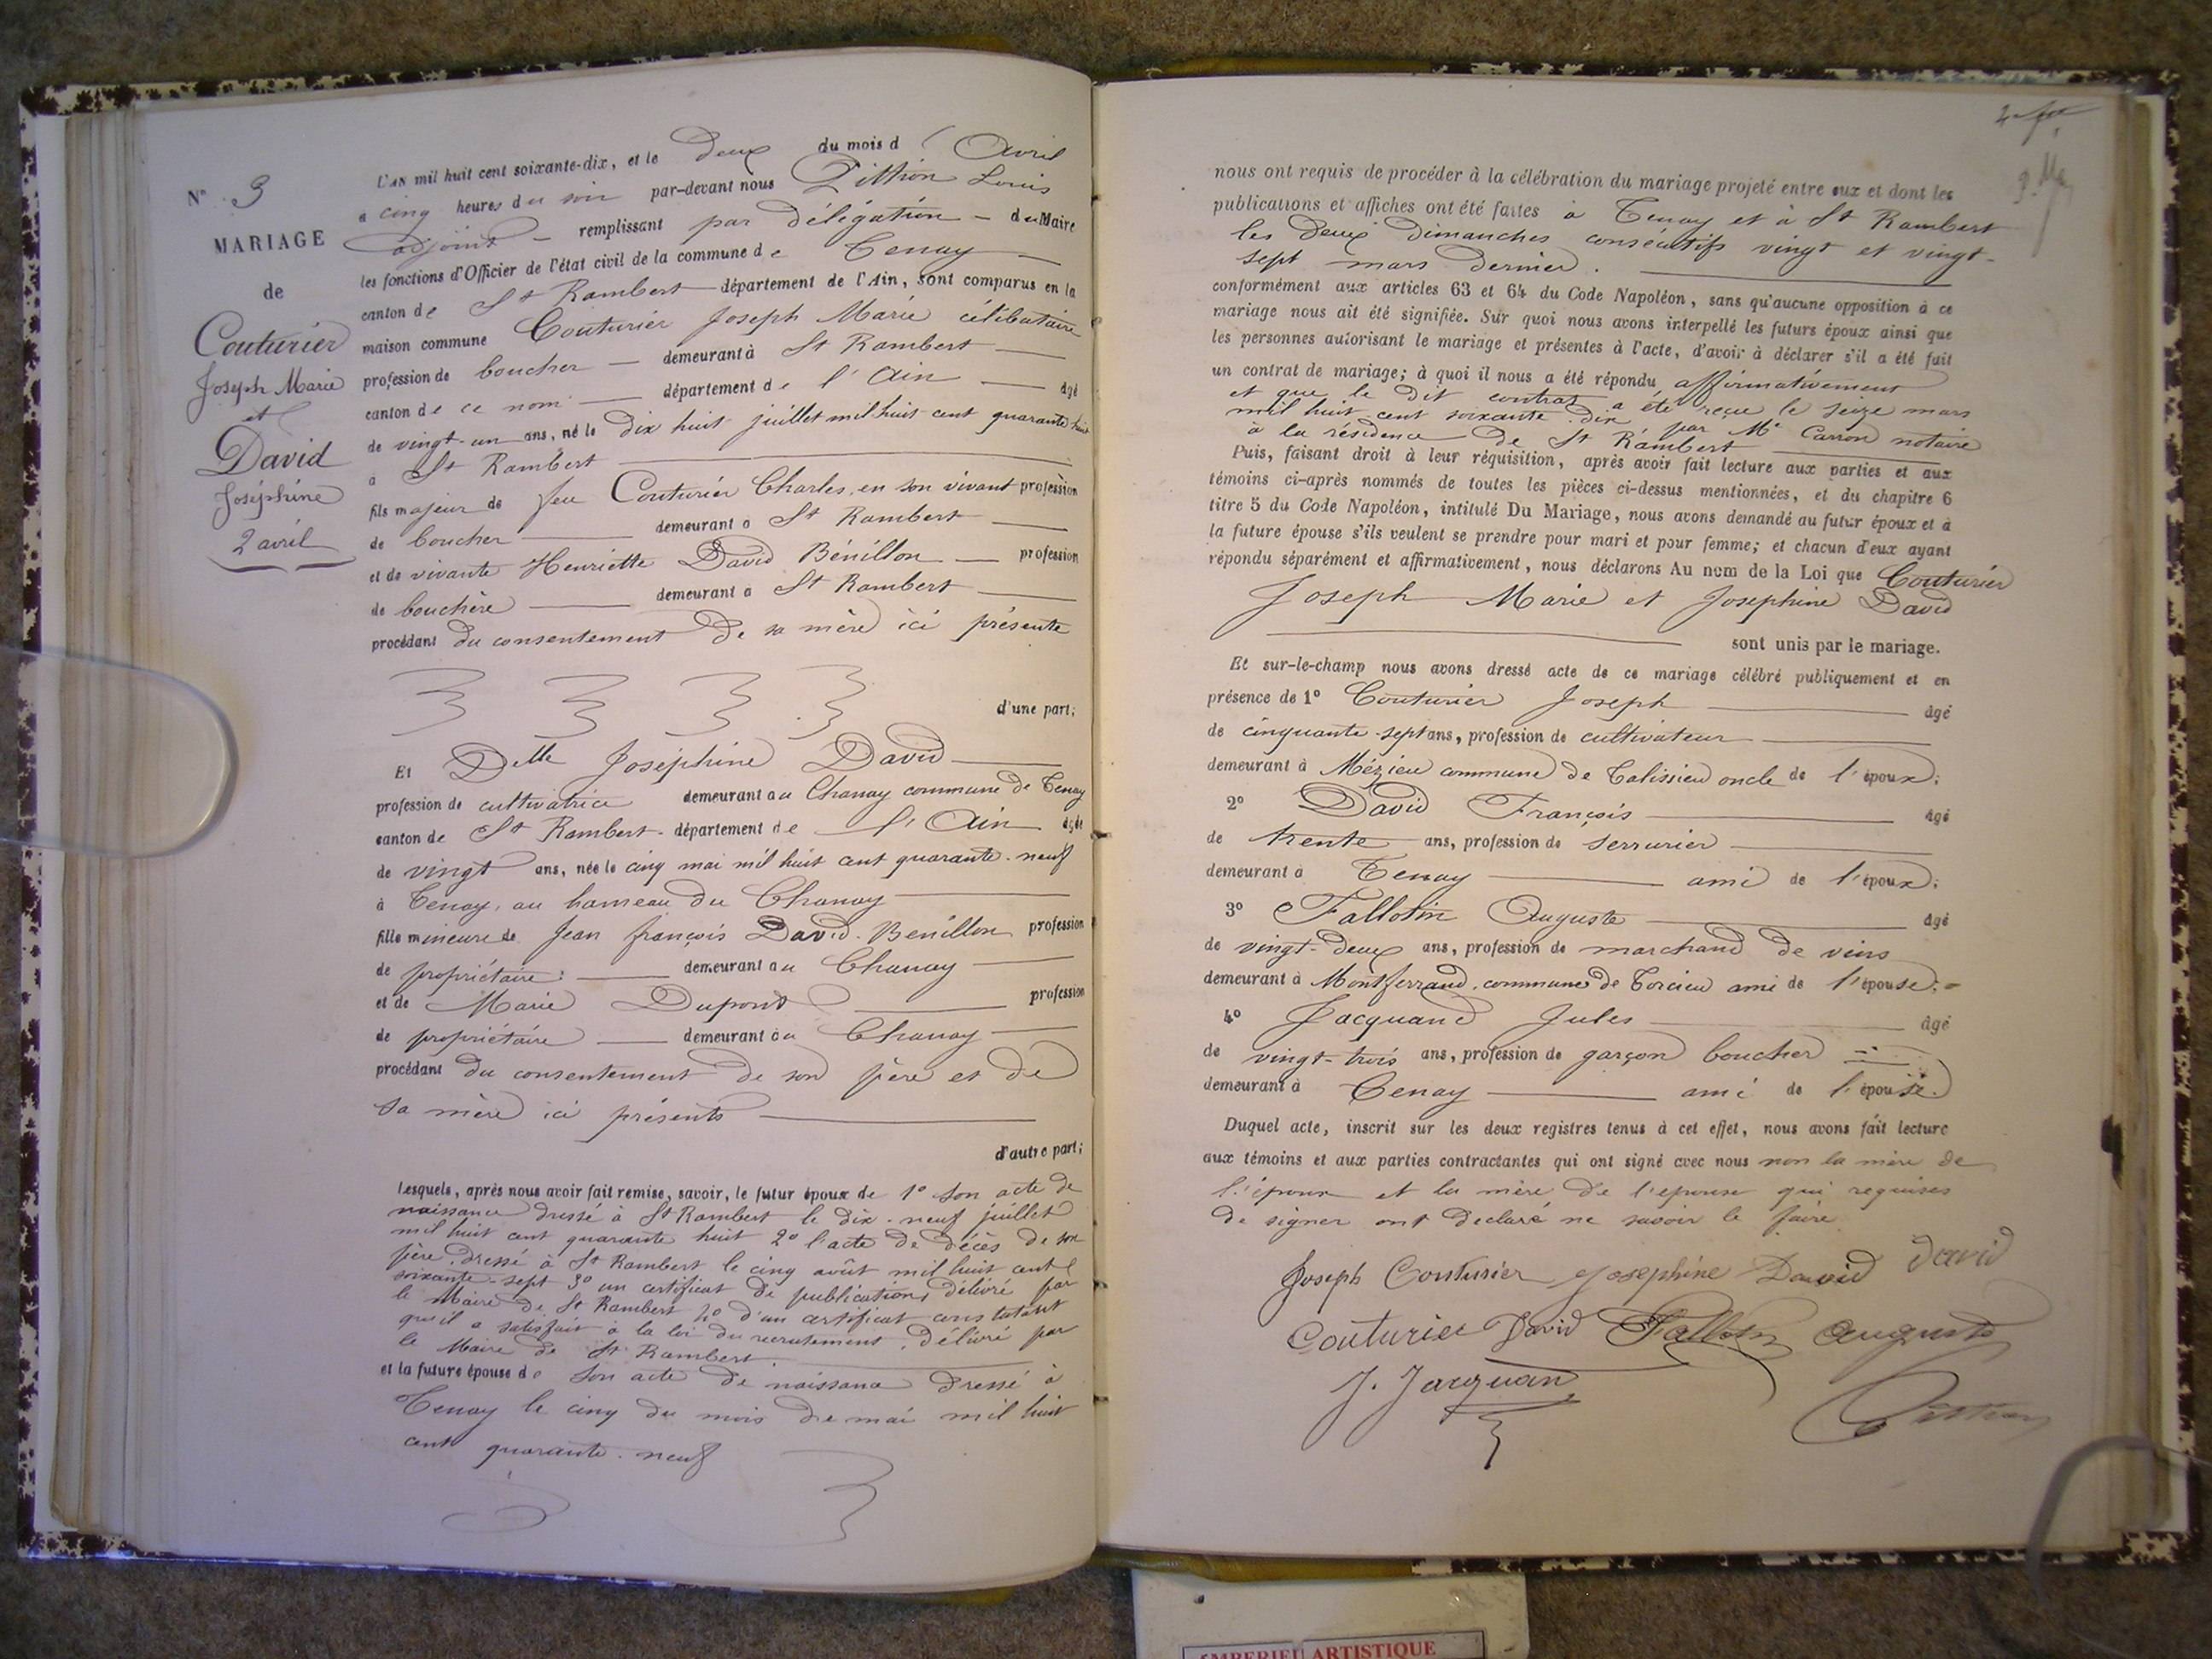 N° 3
MARIAGE
de
Couturier
Joseph Marie
et
David
Joséphine
2 avril
L'AN mil huit cent soixante-dix, et le Deux du mois d' Avril
a cinq heures du soir par-devant nous Pittion Louis
adjoint remplissant par délégation du Maire
les fonctions d'Officier de l'état civil de la commune de Tenay
canton de St Rambert département de l'Ain, sont comparus en la
maison commune Couturier Joseph Marie célibataire
profession de boucher demeurant à St Rambert
canton de ce nom département de l'Ain âgé
de vingt-un ans, né le dix huit juillet mil huit cent quarante huit
à St Rambert
fils majeur de feu Couturier Charles, en son vivant profession
de boucher demeurant à St Rambert
et de vivante Henriette David Bénillon profession
de bouchère demeurant à St Rambert
procédant du consentement de sa mère ici présente
d'une part;
Et Delle Joséphine David
profession de cultivatrice demeurant au Chanay commune de Tenay
canton de St Rambert département de l'Ain âgée
de vingt ans, née le cinq mai mil huit cent quarante-neuf
à Tenay, au hameau du Chanay
fille mineure de Jean françois David-Benillon profession
de propriétaire demeurant au Chanay
et de Marie Dupont profession
de propriétaire demeurant au Chanay
procédant du consentement de son père et de
sa mère ici présents
d'autre part;
lesquels, après nous avoir fait remise, savoir, le futur époux de 1° son acte de
naissance dressé à St Rambert le dix-neuf juillet
mil huit cent quarante huit 2° l'acte de décès de son
père, dressé à St Rambert le cinq août mil huit cent
soixante-sept 3° un certificat de publications délivré par
le Maire de St Rambert 4° d'un certificat constatant
qu'il a satisfait à la loi du recrutement, délivré par
le Maire de St Rambert.
et la future épouse de son acte de naissance dressé à
Tenay le cinq du mois de mai mil huit
cent quarante-neuf
nous ont requis de procéder à la célébration du mariage projeté entre eux et dont les
publications et affiches ont été faites à Tenay et à St Rambert
les deux dimanches consécutifs vingt et vingt-
sept mars dernier.
conformément aux articles 63 et 64 du Code Napoléon, sans qu'aucune opposition à ce
mariage nous ait été signifiée. Sur quoi nous avons interpellé les futurs époux ainsi que
les personnes autorisant le mariage et présentes à l'acte, d'avoir à déclarer s'il a été fait
un contrat de mariage; à quoi il nous a été répondu affirmativement
et que le dit contrat a été reçu le seize mars
mil huit cent soixante-dix par Me Carron notaire
à la résidence de St Rambert
Puis, faisant droit à leur réquisition, après avoir fait lecture aux parties et aux
témoins ci-après nommés de toutes les pièces ci-dessus mentionnées, et du chapitre 6
titre 5 du Code Napoléon, intitulé Du Mariage, nous avons demandé au futur époux et à
la future épouse s'ils veulent se prendre pour mari et pour femme; et chacun d'eux ayant
répondu séparément et affirmativement, nous déclarons Au nom de la Loi que Couturier
Joseph Marie et Joséphine David
sont unis par le mariage.
Et sur-le-champ nous avons dressé acte de ce mariage célébré publiquement et en
présence de 1° Couturier Joseph âgé
de cinquante-sept ans, profession de cultivateur
demeurant à Mézieu commune de Talissieu oncle de l'époux;
2° David François âgé
de trente ans, profession de serrurier
demeurant à Tenay ami de l'époux;
3° Fallotin Auguste âgé
de vingt-deux ans, profession de marchand de vins
demeurant à Montferrand, commune de Torcieu ami de l'épouse;
4° Jacquand Jules âgé
de vingt-trois ans, profession de garçon boucher
demeurant à Tenay ami de l'épouse.
Duquel acte, inscrit sur les deux registres tenus à cet effet, nous avons fait lecture
aux témoins et aux parties contractantes qui ont signé avec nous non la mère de
l'époux et la mère de l'épouse qui requises
de signer ont déclaré ne savoir le faire
Joseph Couturier Josephine David David
Couturier David Fallotin Auguste
J. Jacquand
Pittion
ARTISTIQUE